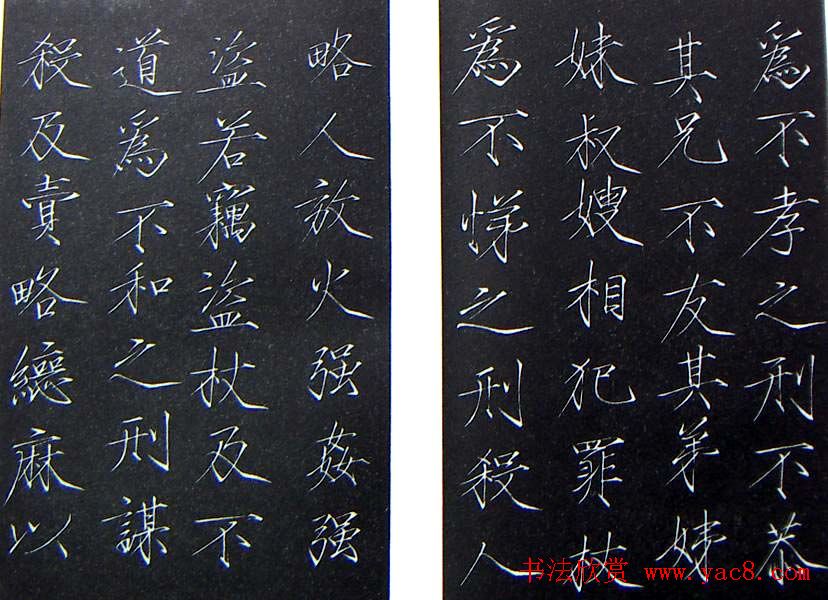 爲不孝之刑不恭
其兄不友其弟姊
妹叔嫂相犯罪杖
爲不悌之刑殺人
略人放火强姦强
盜若竊盜杖及不
道爲不和之刑謀
殺及賣略緦麻以
书法欣赏 www.yac8.com